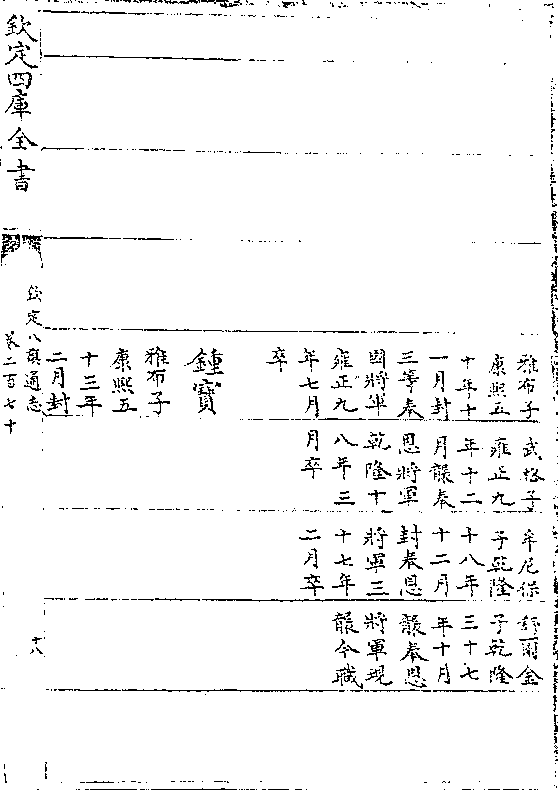 雅布子
康熙五
十年十
一月封
三等奉
國將軍
雍正九
年七月
卒
鍾寶
雅布子
康熙五
十三年
二月封
武格子
雍正九
年十二
月襲奉
恩將軍
乾隆十
八年三
月卒
牟尼保
子乾隆
十八年
十二月
封奉恩
將軍三
十七年
二月卒
舒爾金
子乾隆
三十七
年十月
襲奉恩
將軍現
襲今職
欽定四庫全書
欽定八旗通志
卷二百七十
十八